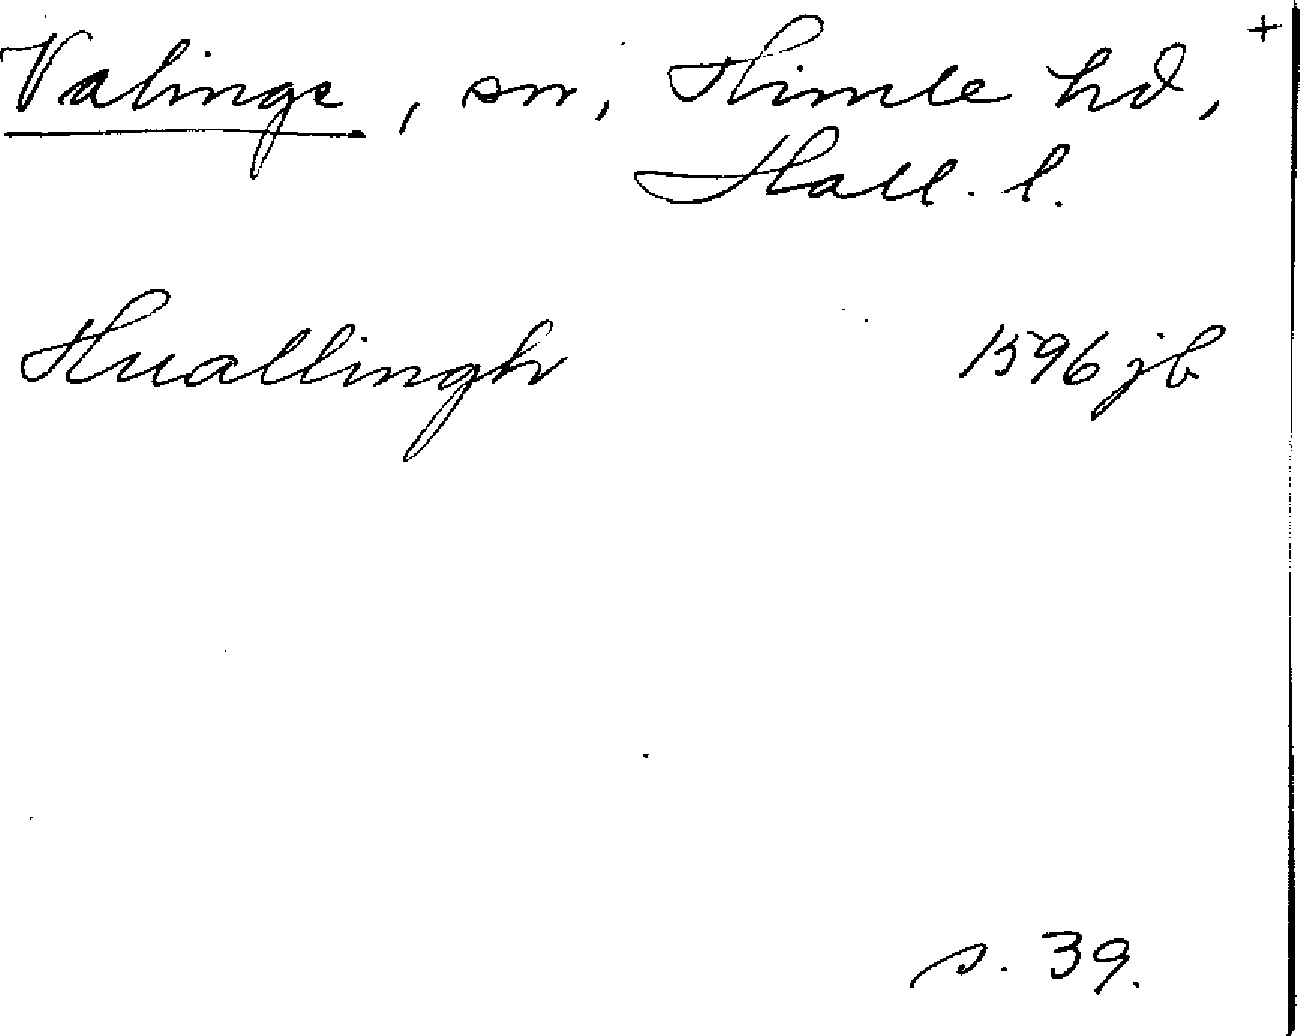 Valinge, sn, Himle hd, +
Hall. l.
Huallingh 1596 jb
s. 39.